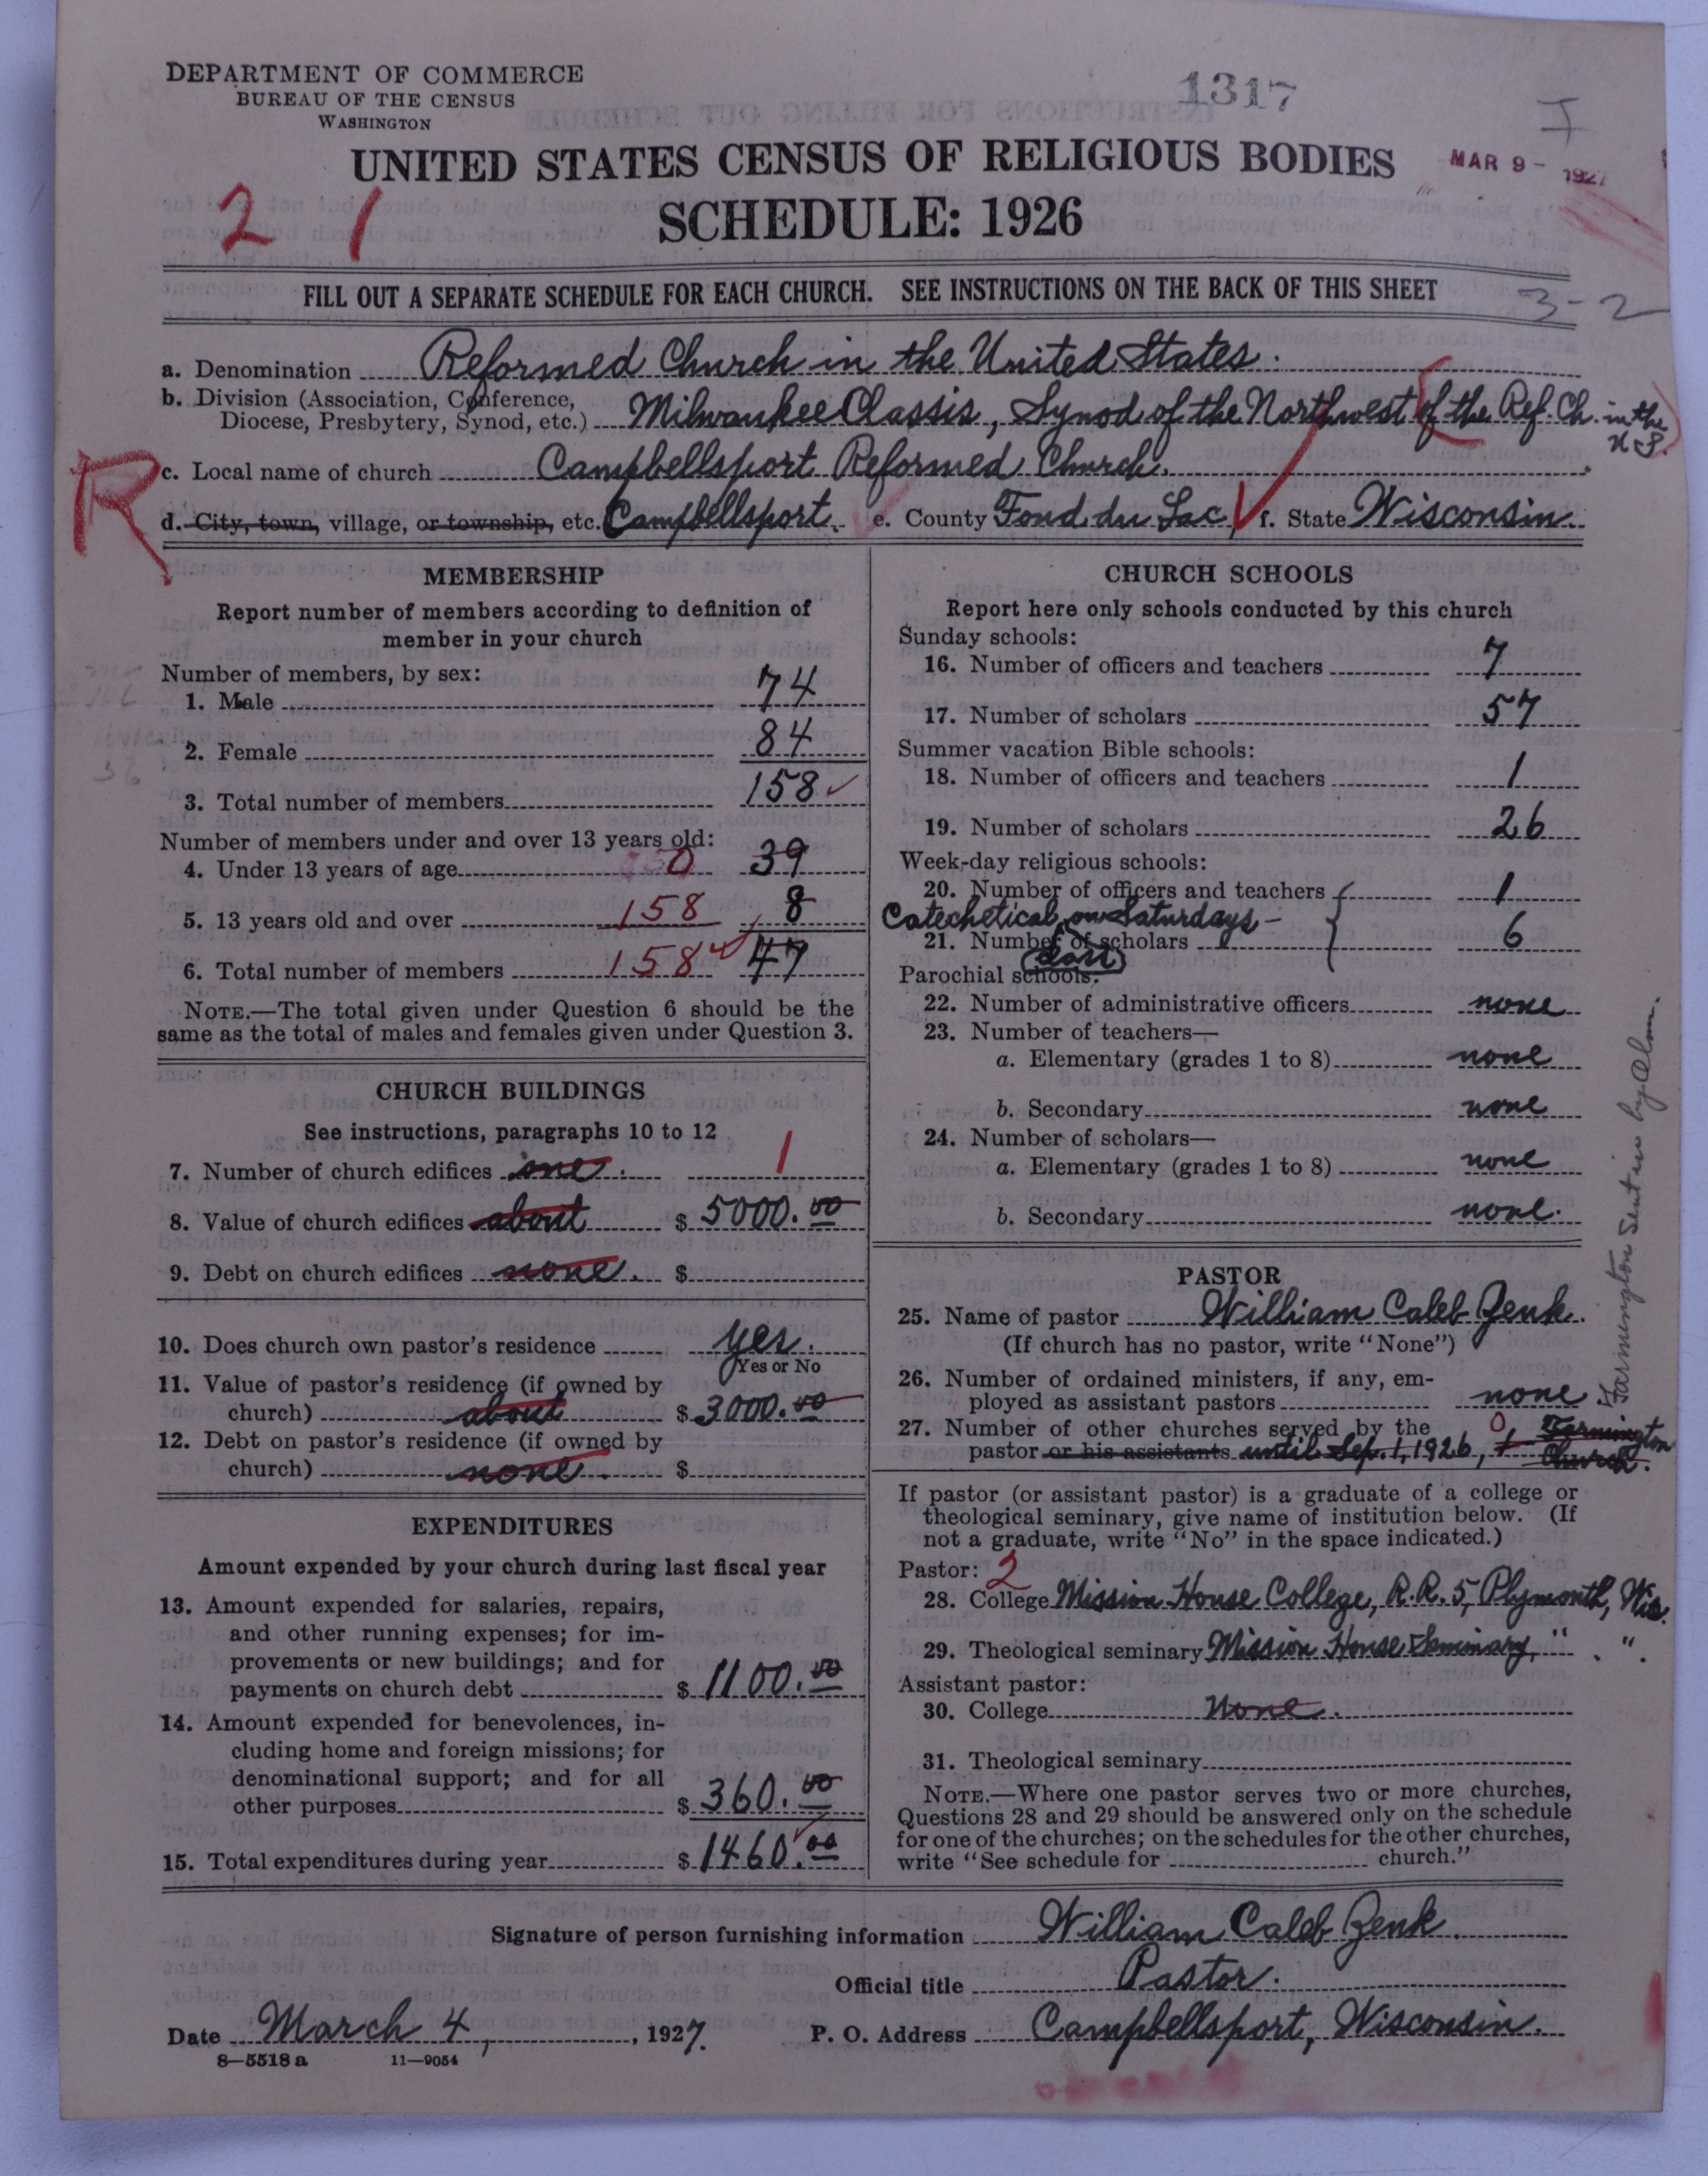 DEPARTMENT OF COMMERCE
BUREAU OF THE CENSUS
WASHINGTON
1317
I
UNITED STATES CENSUS OF RELIGIOUS BODIES
MAR 9 - 1927
2 1
SCHEDULE: 1926
FILL OUT A SEPARATE SCHEDULE FOR EACH CHURCH. SEE INSTRUCTIONS ON THE BACK OF THIS SHEET
3-2
a. Denomination Reformed Church in the United States.
b. Division (Association, Conference, Diocese, Presbytery, Synod, etc.) Milwaukee Classis, Synod of the Northwest of the Ref. Ch. in the U.S.
R
c. Local name of church Campbellsport Reformed Church.
d. City, town, village, or township, etc. Campbellsport. e. County Fond du Lac f. State Wisconsin.
MEMBERSHIP
Report number of members according to definition of
member in your church
Number of members, by sex:
1. Male 74
2. Female 84
3. Total number of members 158
Number of members under and over 13 years old:
4. Under 13 years of age 0 39
5. 13 years old and over 158 8
6. Total number of members 158 47
NOTE.—The total given under Question 6 should be the
same as the total of males and females given under Question 3.
CHURCH BUILDINGS
See instructions, paragraphs 10 to 12
7. Number of church edifices one. 1
8. Value of church edifices about $ 5000.00
9. Debt on church edifices none. $
10. Does church own pastor's residence yes.
Yes or No
11. Value of pastor's residence (if owned by
church) about $ 3000.00
12. Debt on pastor's residence (if owned by
church) none. $
EXPENDITURES
Amount expended by your church during last fiscal year
13. Amount expended for salaries, repairs,
and other running expenses; for im-
provements or new buildings; and for
payments on church debt $ 1100.00
14. Amount expended for benevolences, in-
cluding home and foreign missions; for
denominational support; and for all
other purposes $ 360.00
15. Total expenditures during year $ 1460.00
CHURCH SCHOOLS
Report here only schools conducted by this church
Sunday schools:
16. Number of officers and teachers 7
17. Number of scholars 57
Summer vacation Bible schools:
18. Number of officers and teachers 1
19. Number of scholars 26
Week-day religious schools:
20. Number of officers and teachers 1
Catechetical, on Saturdays -
21. Number of scholars 6
Parochial schools:
22. Number of administrative officers none
23. Number of teachers—
a. Elementary (grades 1 to 8) none
b. Secondary none
24. Number of scholars—
a. Elementary (grades 1 to 8) none
b. Secondary none.
PASTOR
25. Name of pastor William Caleb Zenk.
(If church has no pastor, write "None")
26. Number of ordained ministers, if any, em-
ployed as assistant pastors none.
27. Number of other churches served by the 0
pastor or his assistants until Sep. 1, 1926, 1 Farmington Church.
Farmington sent in by
If pastor (or assistant pastor) is a graduate of a college or
theological seminary, give name of institution below. (If
not a graduate, write "No" in the space indicated.)
Pastor: 2
28. College Mission House College, R.R. 5, Plymouth, Wis.
29. Theological seminary Mission House Seminary, " . ".
Assistant pastor:
30. College None.
31. Theological seminary
NOTE.—Where one pastor serves two or more churches,
Questions 28 and 29 should be answered only on the schedule
for one of the churches; on the schedules for the other churches,
write "See schedule for church."
Signature of person furnishing information William Caleb Zenk.
Official title Pastor.
Date March 4, 1927. P. O. Address Campbellsport, Wisconsin.
8—5518 a 11—9054